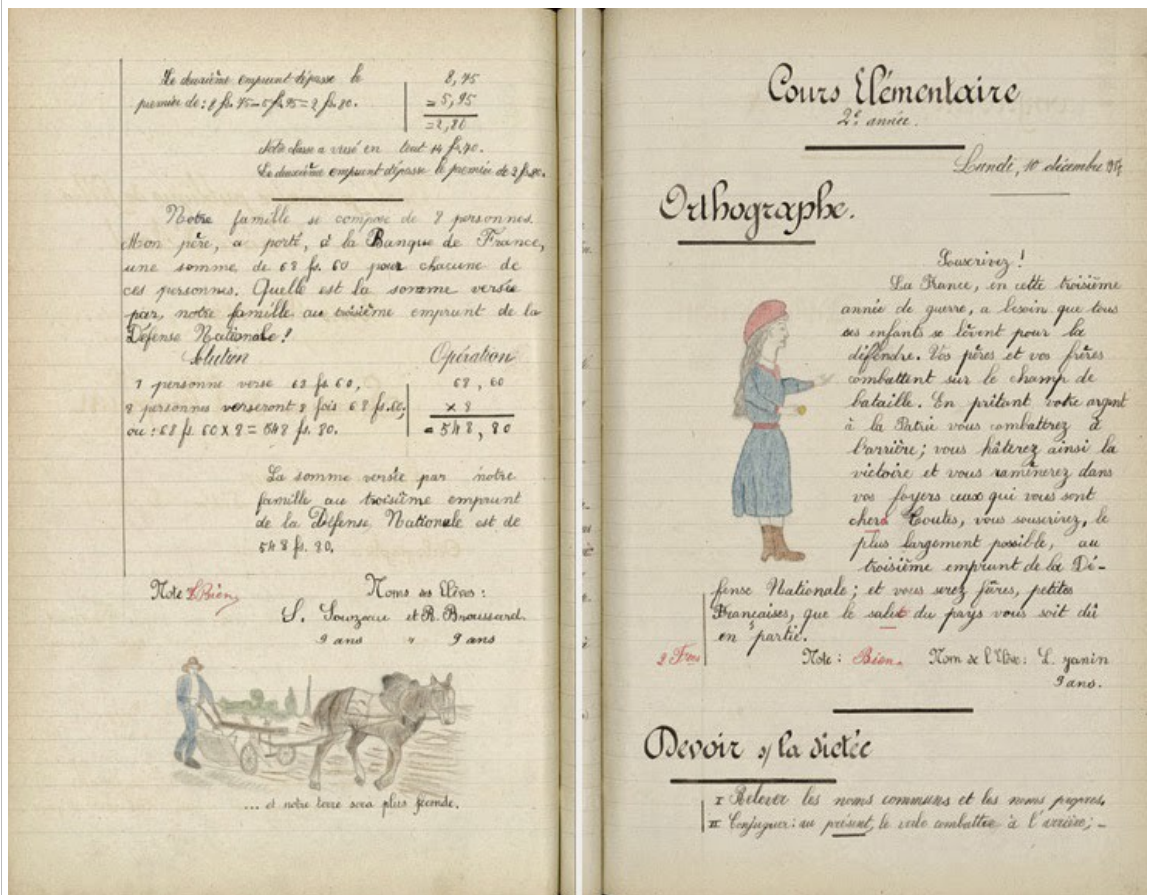 Le deuxième emprunt dépasse le
premier de : 8 fs. 75 - 5 fs. 95 = 2 fs. 80.
8,75
- 5,95
= 2,80
Notre classe a versé en tout 14 fs. 70.
Le deuxième emprunt dépasse le premier de 2 fs. 80.
Notre famille se compose de 8 personnes.
Mon père, a porté, à la Banque de France,
une somme de 68 fs. 60 pour chacune de
ces personnes. Quelle est la somme versée
par, notre famille au troisième emprunt de la
Défense Nationale ?
Solution
Opération
1 personne verse 68 fs 60,
8 personnes verseront 8 fois 68 fs. 60,
ou : 68 fs. 60 x 8 = 548 fs. 80.
68, 60
x 8
= 548, 80
La somme versée par notre
famille au troisième emprunt
de la Défense Nationale est de
548 fs. 80.
Note Bien
Noms des Elèves :
S. et R. Broussard
9 ans " 9 ans
... et notre terre sera plus féconde.
Cours Elémentaire
2e année.
Lundi, 10 décembre
Orthographe.
Souscrivez !
La France, en cette troisième
année de guerre, a besoin que tous
ses enfants se lèvent pour la
défendre. Vos pères et vos frères
combattent sur le champ de
bataille. En prêtant votre argent
à la Patrie vous combattrez à
l'arrière ; vous hâterez ainsi la
victoire et vous ramènerez dans
vos foyers ceux qui vous sont
chers Toutes, vous souscrirez, le
plus largement possible, au
troisième emprunt de la Dé-
fense Nationale ; et vous serez fières, petites
Françaises, que le salut du pays vous soit dû
en partie.
2 Fres
Note : Bien. Nom de l'Elève : L. Janin
9 ans.
Devoir s/ la dictée
I Relever les noms communs et les noms propres,
II Conjuguer : au présent, le verbe combattre à l'arrière ; -